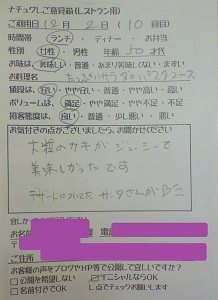 ナチュグしご意見箱(レストラン用)
ご利用日 12月 2日(10 回目)
時間帯 ランチ・ ディナー ・お弁当
性別 女性・ 男性 年齢 50 才代
お味は 美味しい・普通・あまり美味しくない・普通
お料理名
たっぷりサラダのパスタコース
値段は 安い・やや安い・普通・やや高い・高い
ボリュームは 満足・やや満足・やや不足・不足
接客態度は 良い・普通・少し悪い・悪い
お気付きの点がございましたら、お聞かせください
大粒のカキがジューシーで
美味しかったです
お名前
〒
ご住所
お客様の声をブログやHP等で公開して宜しいですか?
□公開を希望しない □イニシャルならOK
□名前付きでOK し点でチェックお願いします